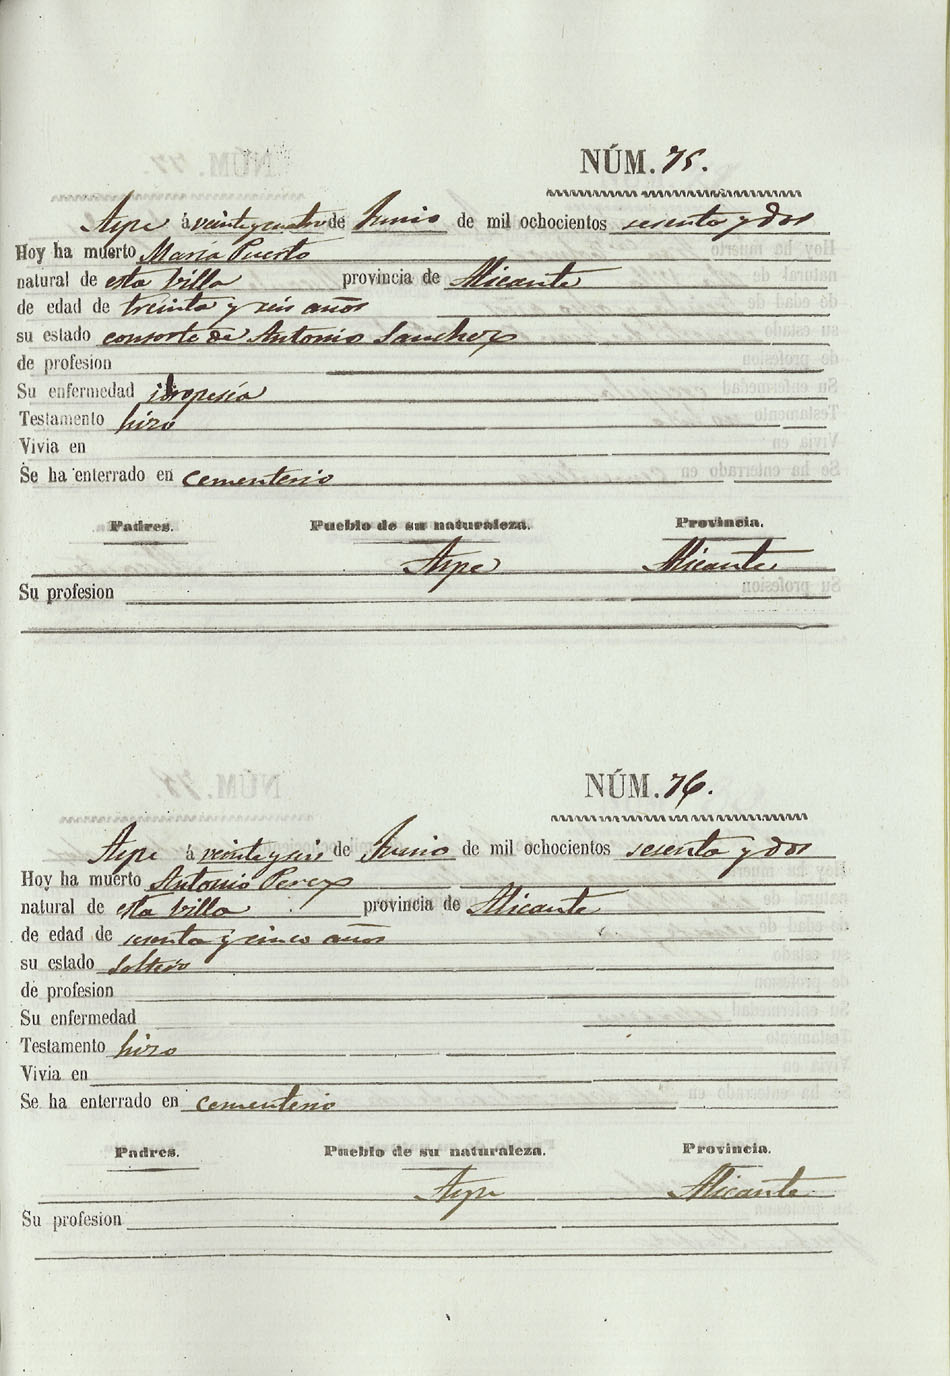 NÚM. 75.
Aspe á veinte y cuatro de Junio de mil ochocientos sesenta y dos
Hoy ha muerto Maria Puerto
natural de esta Villa provincia de Alicante
de edad de treinta y seis años
su estado consorte de Antonio Sanchez
de profesion
Su enfermedad idropesía
Testamento hizo
Vivia en
Se ha enterrado en cementerio
Padres. Pueblo de su naturaleza. Provincia.
Aspe Alicante
Su profesion
NÚM. 76.
Aspe á veinte y seis de Junio de mil ochocientos sesenta y dos
Hoy ha muerto Antonio Perez
natural de esta Villa provincia de Alicante
de edad de sesenta y cinco años
su estado soltero
de profesion
Su enfermedad
Testamento hizo
Vivia en
Se ha enterrado en cementerio
Padres. Pueblo de su naturaleza. Provincia.
Aspe Alicante
Su profesion